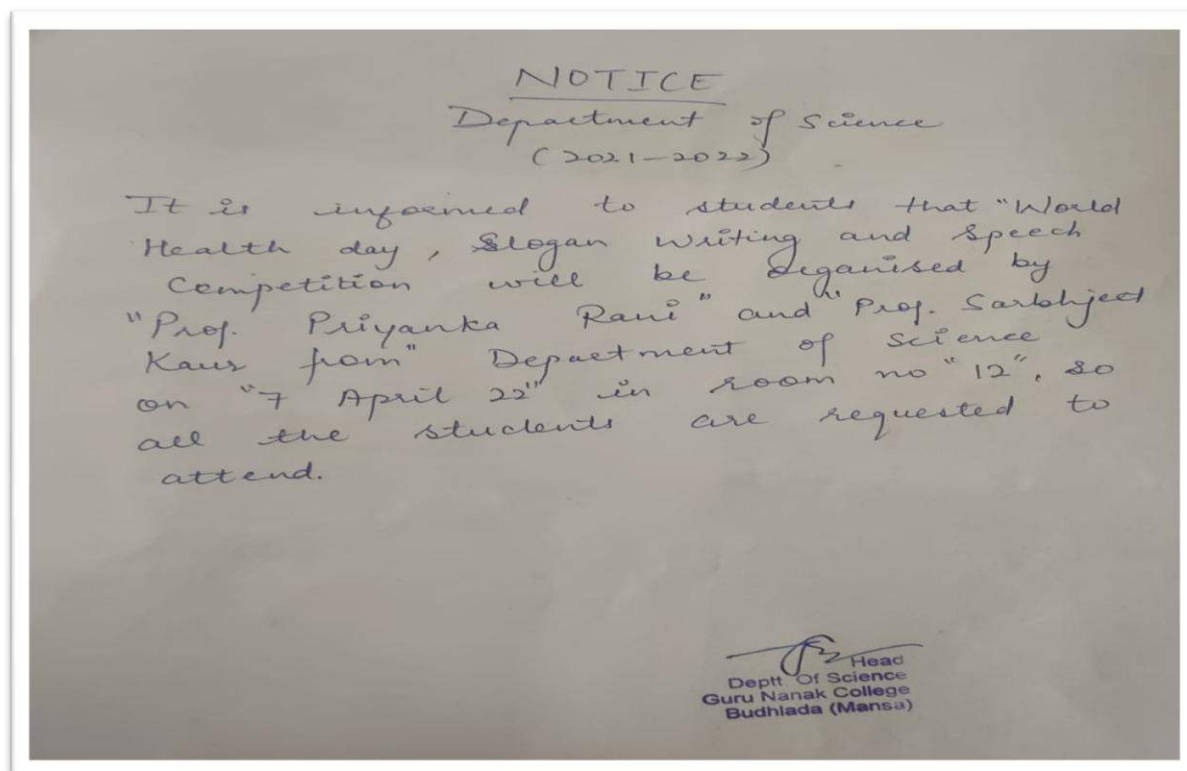 NOTICE
Department of Science
(2021-2022)
It is informed to students that "World
Health day, Slogan Writing and Speech
Competition will be organised by
"Prof. Priyanka Rani" and "Prof. Sarbhjeet
Kaur from" Department of Science
on "7 April 22" in room no "12", so
all the students are requested to
attend.
Head
Deptt. Of Science
Guru Nanak College
Budhlada (Mansa)